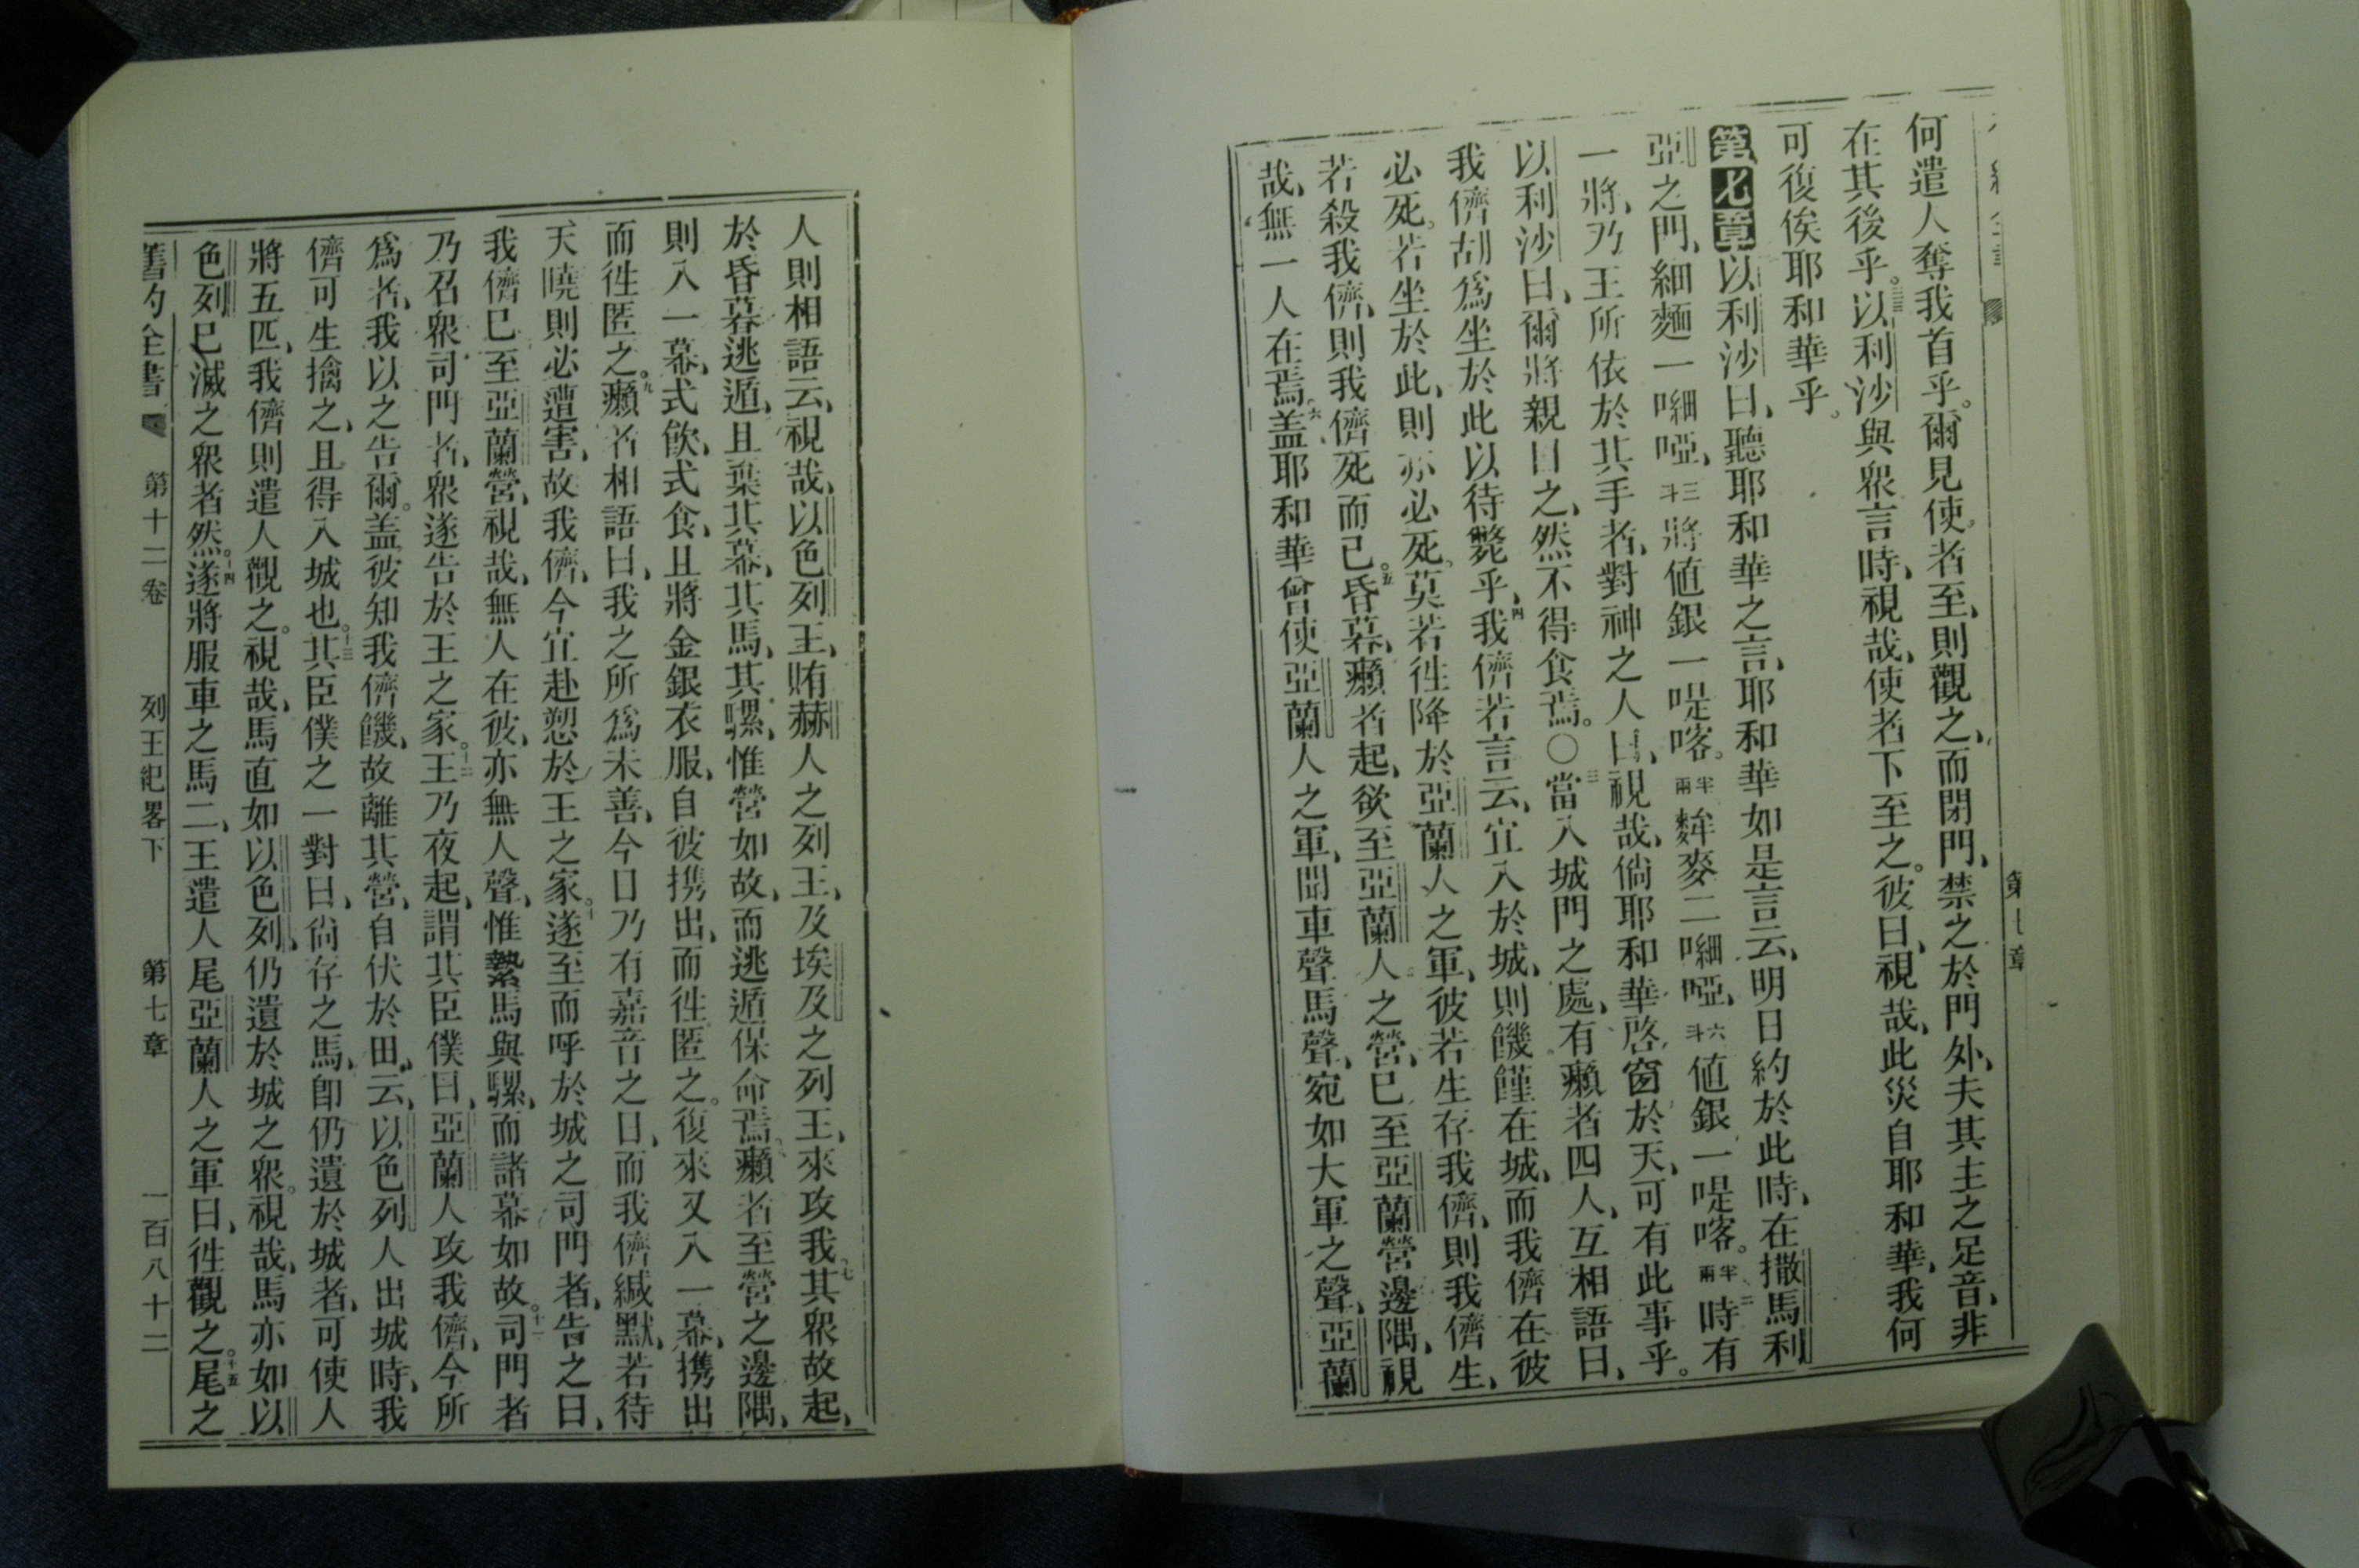 何遣人奪我首乎。爾見使者至、則觀之、而閉門、禁之於門外、夫其主之足音、非
在其後乎。三三以利沙與眾言時、視哉、使者下至之。彼曰、視哉、此災自耶和華、我何
可復俟耶和華乎。
第七章以利沙曰、聽耶和華之言、耶和華如是言云、明日約於此時、在撒馬利
亞之門、細麵一㖕啞、三斗將値銀一㖷喀。半兩麰麥二㖕啞、六斗値銀一㖷喀。半兩二時有
一將、乃王所依於其手者、對神之人曰、視哉、倘耶和華啓窗於天、可有此事乎。
以利沙曰、爾將親目之、然不得食焉。〇三當入城門之處、有癩者四人、互相語曰、
我儕胡爲坐於此以待斃乎、四我儕若言云、宜入於城、則饑饉在城、而我儕在彼
必死。若坐於此、則亦必死。莫若徃降於亞蘭人之軍、彼若生存我儕、則我儕生、
若殺我儕、則我儕死而已。五昏暮、癩者起、欲至亞蘭人之營、已至亞蘭營邊隅、視
哉、無一人在焉。六盖耶和華曾使亞蘭人之軍、聞車聲馬聲、宛如大軍之聲、亞蘭
第七章
人則相語云、視哉、以色列王、賄赫人之列王、及埃及之列王、來攻我。七其眾故起、
於昏暮逃遁、且棄其幕、其馬、其騾、惟營如故、而逃遁保命焉。八癩者至營之邊隅、
則入一幕、式飲、式食、且將金銀衣服、自彼携出、而徃匿之。復來又入一幕、携出
而徃匿之。九癩者相語曰、我之所爲未善、今日乃有嘉音之日、而我儕緘默、若待
天曉、則必遭害、故我儕、今宜赴愬於王之家。十遂至而呼於城之司門者、告之曰、
我儕已至亞蘭營、視哉、無人在彼、亦無人聲、惟縶馬與騾、而諸幕如故。十一司門者
乃召眾司門者、眾遂告於王之家。十二王乃夜起、謂其臣僕曰、亞蘭人攻我儕、今所
爲者、我以之告爾。盖彼知我儕饑、故離其營、自伏於田、云、以色列人出城時、我
儕可生擒之、且得入城也。十三其臣僕之一對曰、尙存之馬、卽仍遺於城者、可使人
將五匹、我儕則遣人觀之。視哉、馬直如以色列、仍遺於城之眾。視哉、馬亦如以
色列已滅之眾者然。十四遂將服車之馬二、王遣人尾亞蘭人之軍曰、徃觀之。十五尾之
舊約全書 第十二卷 列王紀畧下 第七章 一百八十二